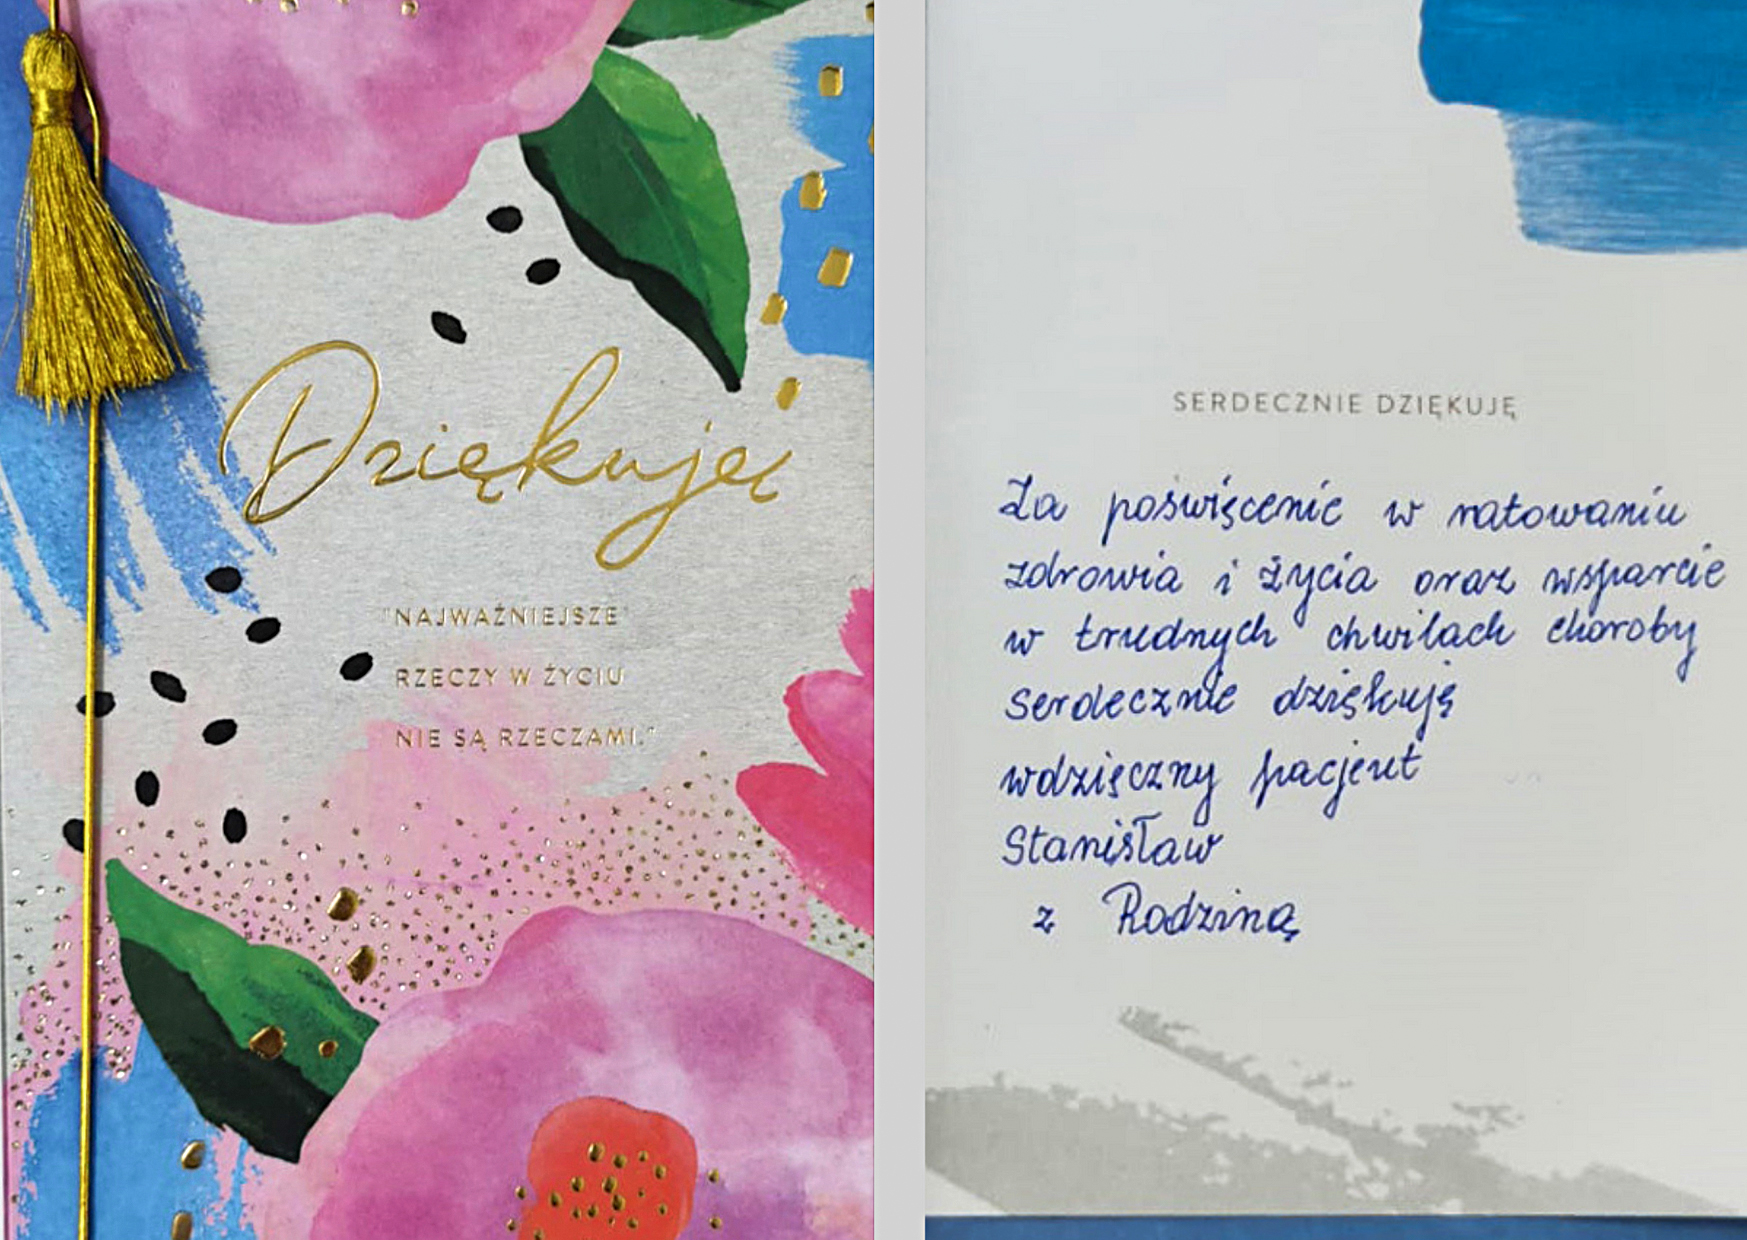 Dziękuję
"NAJWAŻNIEJSZE
RZECZY W ŻYCIU
NIE SĄ RZECZAMI."
SERDECZNIE DZIĘKUJĘ
Za poświęcenie w ratowaniu
zdrowia i życia oraz wsparcie
w trudnych chwilach choroby
serdecznie dziękuję
wdzięczny pacjent
Stanisław
z Rodziną